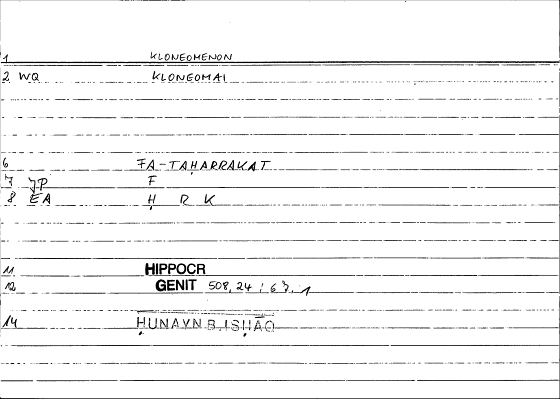 1 KLONEOMENON
2 WQ KLONEOMAI
6 FA-TAḤARRAKAT
7 JP F
8 EA Ḥ R K
11 HIPPOCR
12 GENIT 508,24 : 63,1
14 ḤUNAYN B.ISḤĀQ